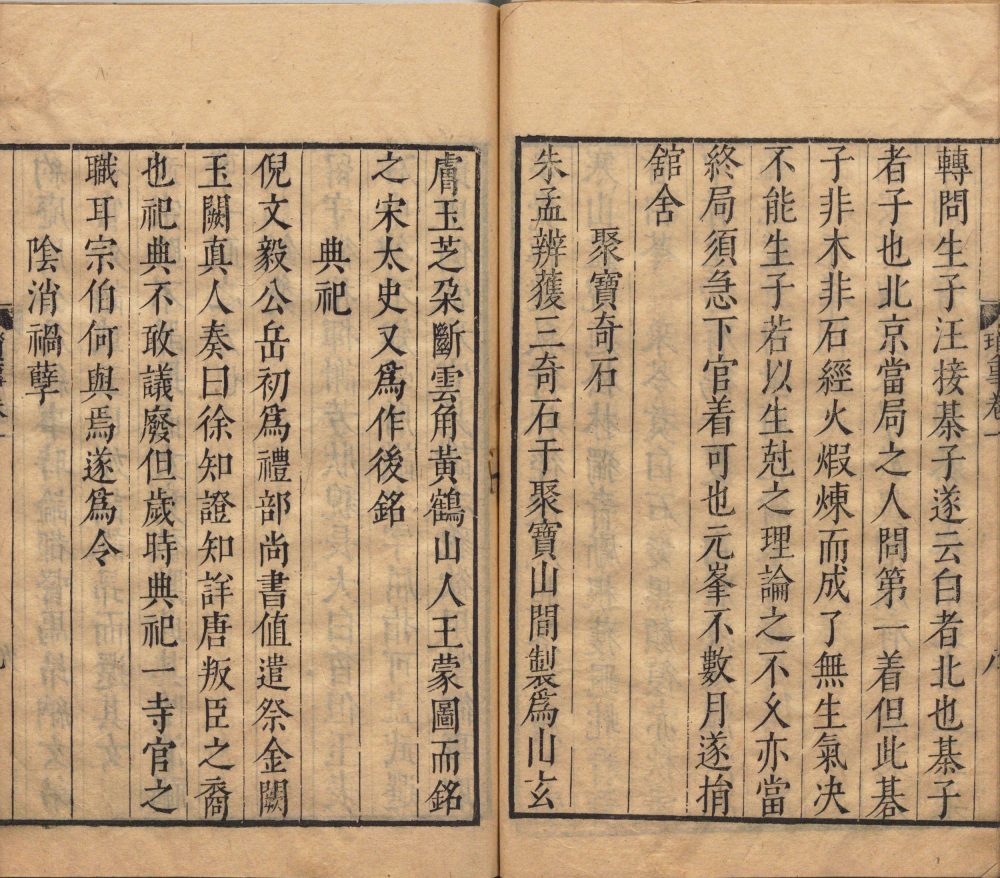 轉問生子汪接棊子遂云白者北也棊子
者子也北京當局之人問第一着但此棊
子非木非石經火煆煉而成了無生氣决
不能生子若以生尅之理論之不乆亦當
終局須急下官着可也元峯不數月遂捐
舘舍
聚寶奇石
朱孟辨蓷三奇石于聚寶山間製爲山玄
膚玉芝朶斷雲角黃鶴山人王蒙圖而銘
之宋太史又爲作後銘
典祀
倪文毅公岳初爲禮部尚書值遣祭金闕
玉闕真人奏曰徐知證知詳唐叛臣之裔
也祀典不敢議廢但歲時典祀一寺官之
職耳宗伯何與焉遂爲令
陰消禍孽